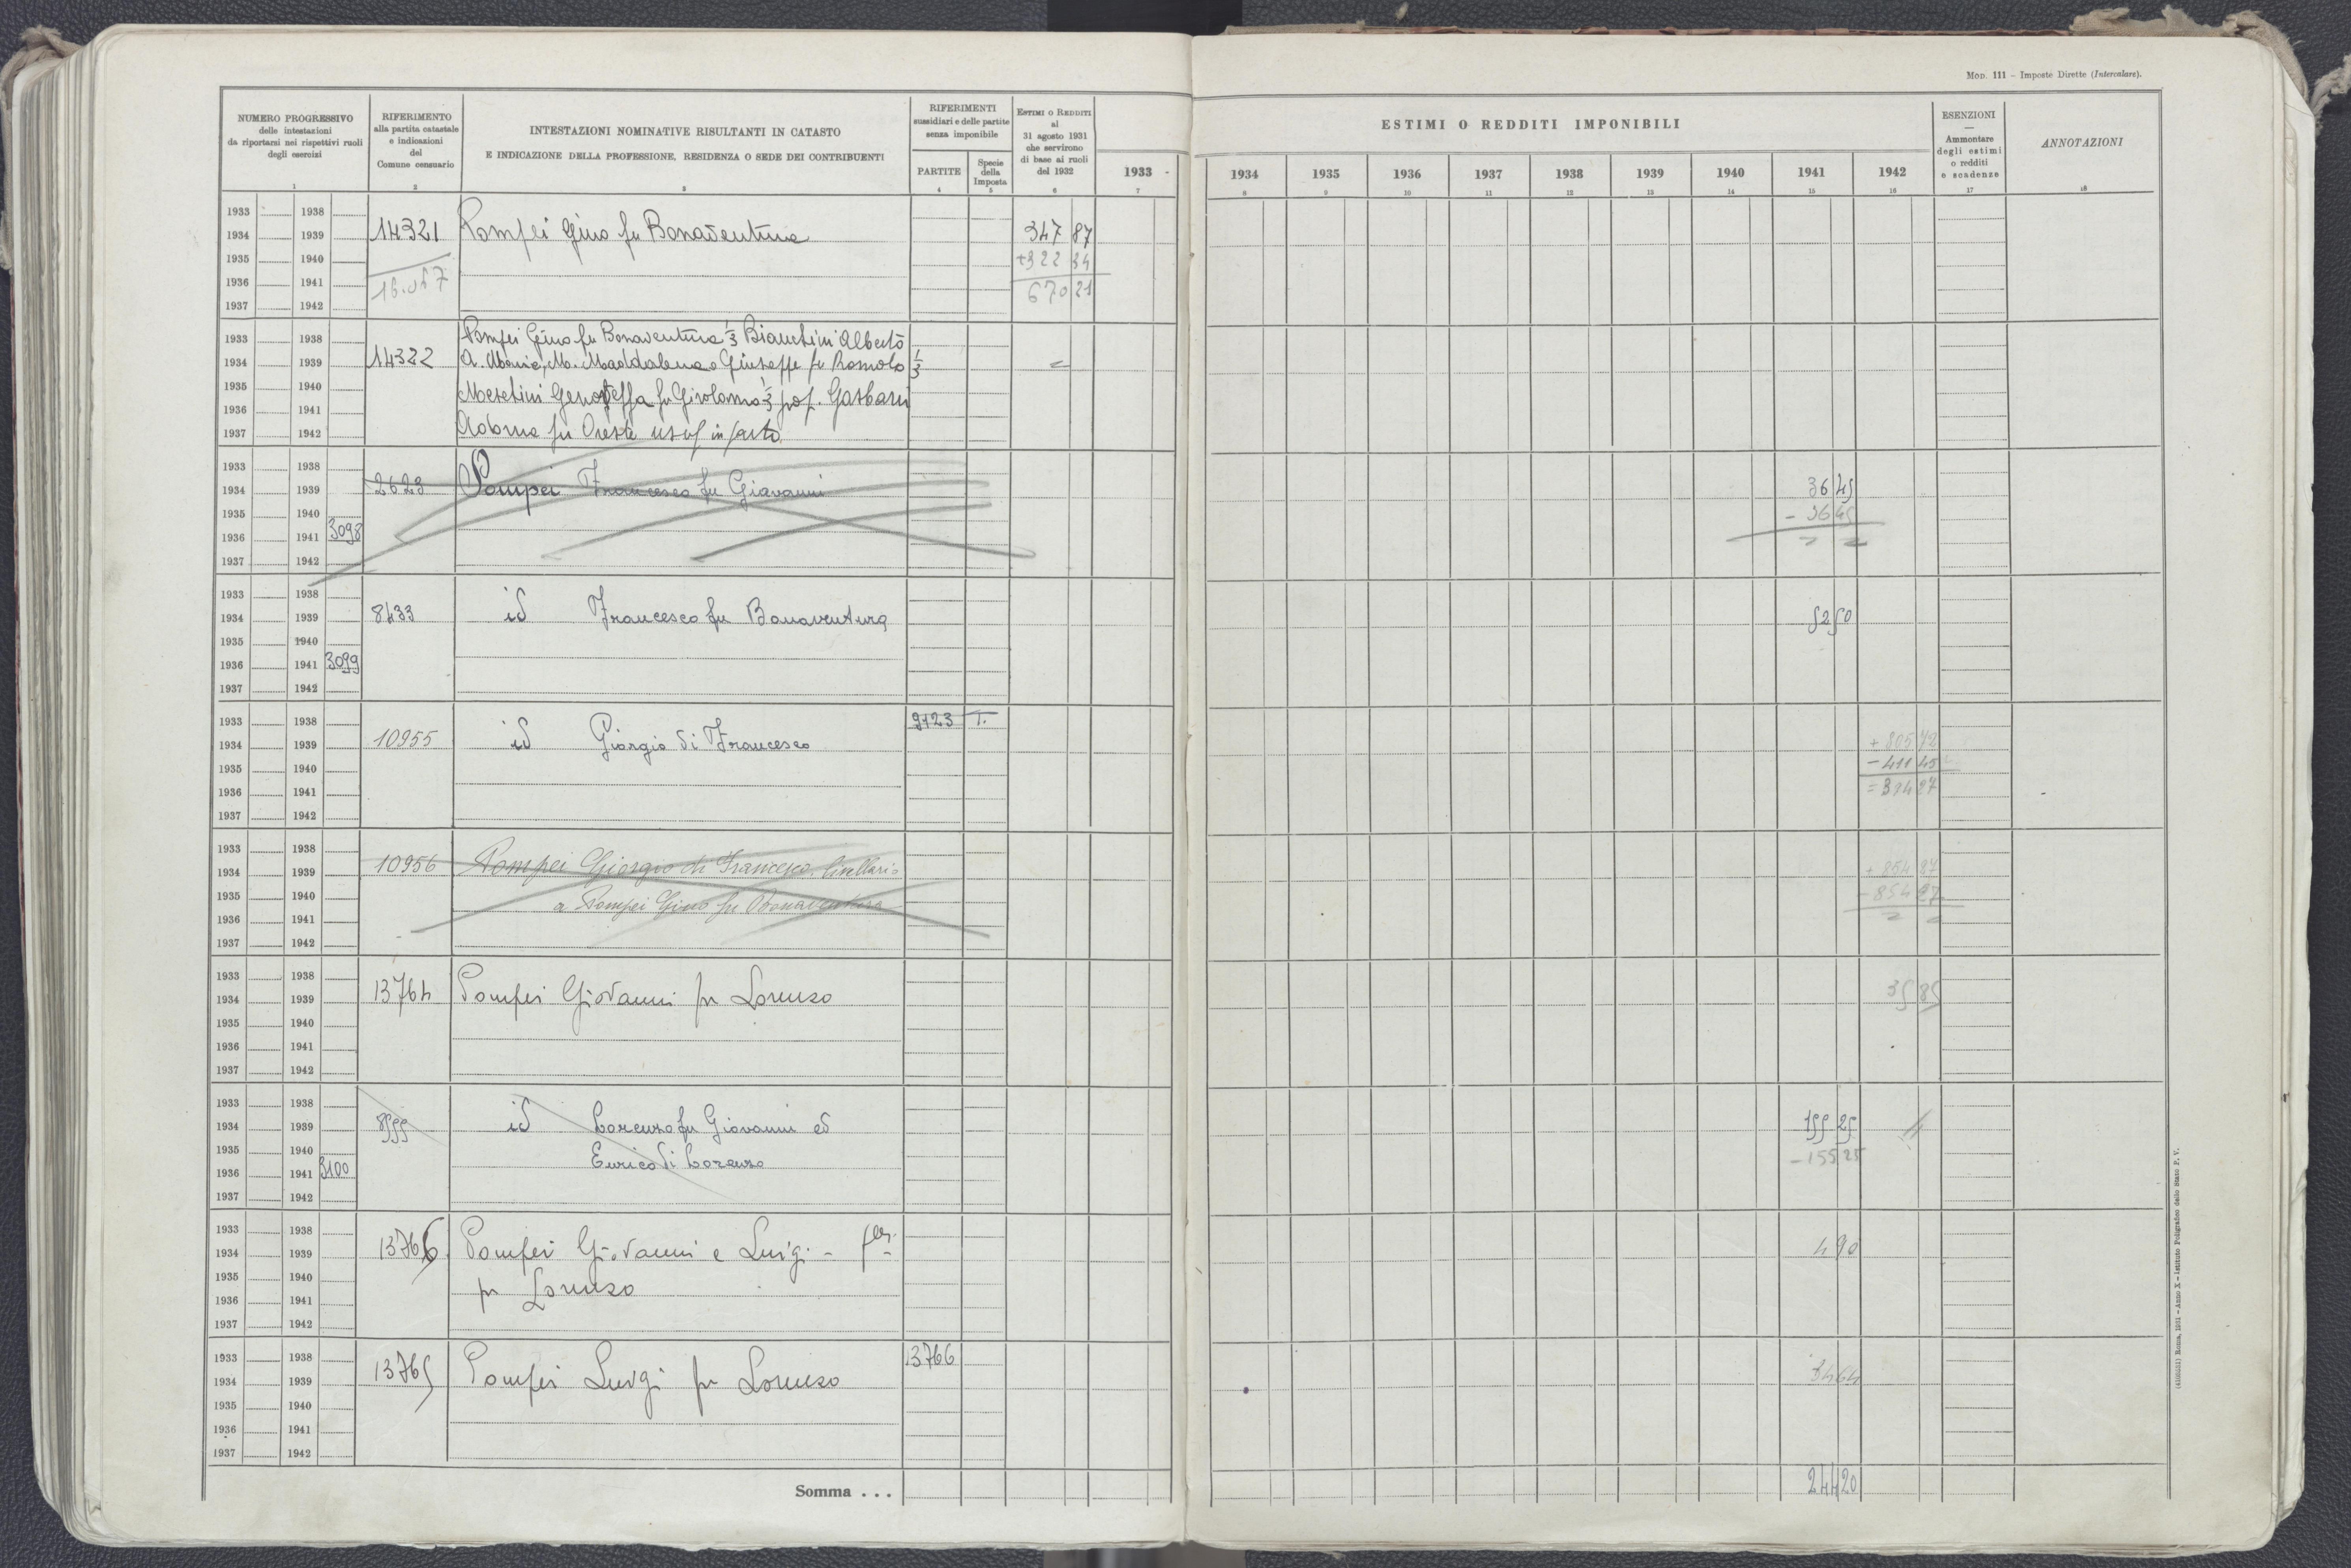 MOD. 111 – Imposte Dirette (Intercalare).
NUMERO PROGRESSIVO
delle intestazioni
da riportarsi nei rispettivi ruoli
degli esercizi
1
RIFERIMENTO
alla partita catastale
e indicazioni
del
Comune censuario
2
INTESTAZIONI NOMINATIVE RISULTANTI IN CATASTO
E INDICAZIONE DELLA PROFESSIONE, RESIDENZA O SEDE DEI CONTRIBUENTI
3
RIFERIMENTI
sussidiari e delle partite
senza imponibile
PARTITE
4
Specie
della
Imposta
5
ESTIMI O REDDITI
al
31 agosto 1931
che servirono
di base ai ruoli
del 1932
6
1933
7
ESTIMI O REDDITI IMPONIBILI
1934 1935 1936 1937 1938 1939 1940 1941 1942
8 9 10 11 12 13 14 15 16
ESENZIONI
—
Ammontare
degli estimi
o redditi
e scadenze
17
ANNOTAZIONI
18
1933 1938
1934 1939 14321 Pompei Gino fu Bonaventura 347 87
1935 1940 +322 34
1936 1941 16.057 670 21
1937 1942
1933 1938 Pompei Gino fu Bonaventura 1/3 Bianchini Alberto
1934 1939 14322 M. Maddalena e Giuseppe fu Romolo 1/3
1935 1940
1936 1941 fu Girolamo 1/3 prof. Gasbarri
1937 1942 fu Oreste usuf in parte
1933 1938
1934 1939 2623 Pompei Francesco fu Giovanni 36 45
1935 1940 - 36 45
1936 1941 3098
1937 1942
1933 1938
1934 1939 8433 id Francesco fu Bonaventura 52 50
1935 1940
1936 1941 3099
1937 1942
1933 1938 9123 T.
1934 1939 10955 id Giorgio di Francesco + 805 72
1935 1940 - 411 45
1936 1941 = 394 27
1937 1942
1933 1938
1934 1939 10956 Pompei Giorgio di Francesco, livellario + 854 27
1935 1940 a Pompei Gino fu Bonaventura - 854 27
1936 1941
1937 1942
1933 1938
1934 1939 13764 Pompei Giovanni fu Lorenzo 35 85
1935 1940
1936 1941
1937 1942
1933 1938
1934 1939 8555 id Lorenzo fu Giovanni ed 155 25
1935 1940 Enrico di Lorenzo - 155 25
1936 1941 3100
1937 1942
1933 1938
1934 1939 13766 Pompei Giovanni e Luigi - 4 90
1935 1940 fu Lorenzo
1936 1941
1937 1942
1933 1938 13766
1934 1939 13765 Pompei Luigi fu Lorenzo 34 64
1935 1940
1936 1941
1937 1942
Somma . . . 244 20
Roma, 1931 – Anno X – Istituto Poligrafico dello Stato P. V.